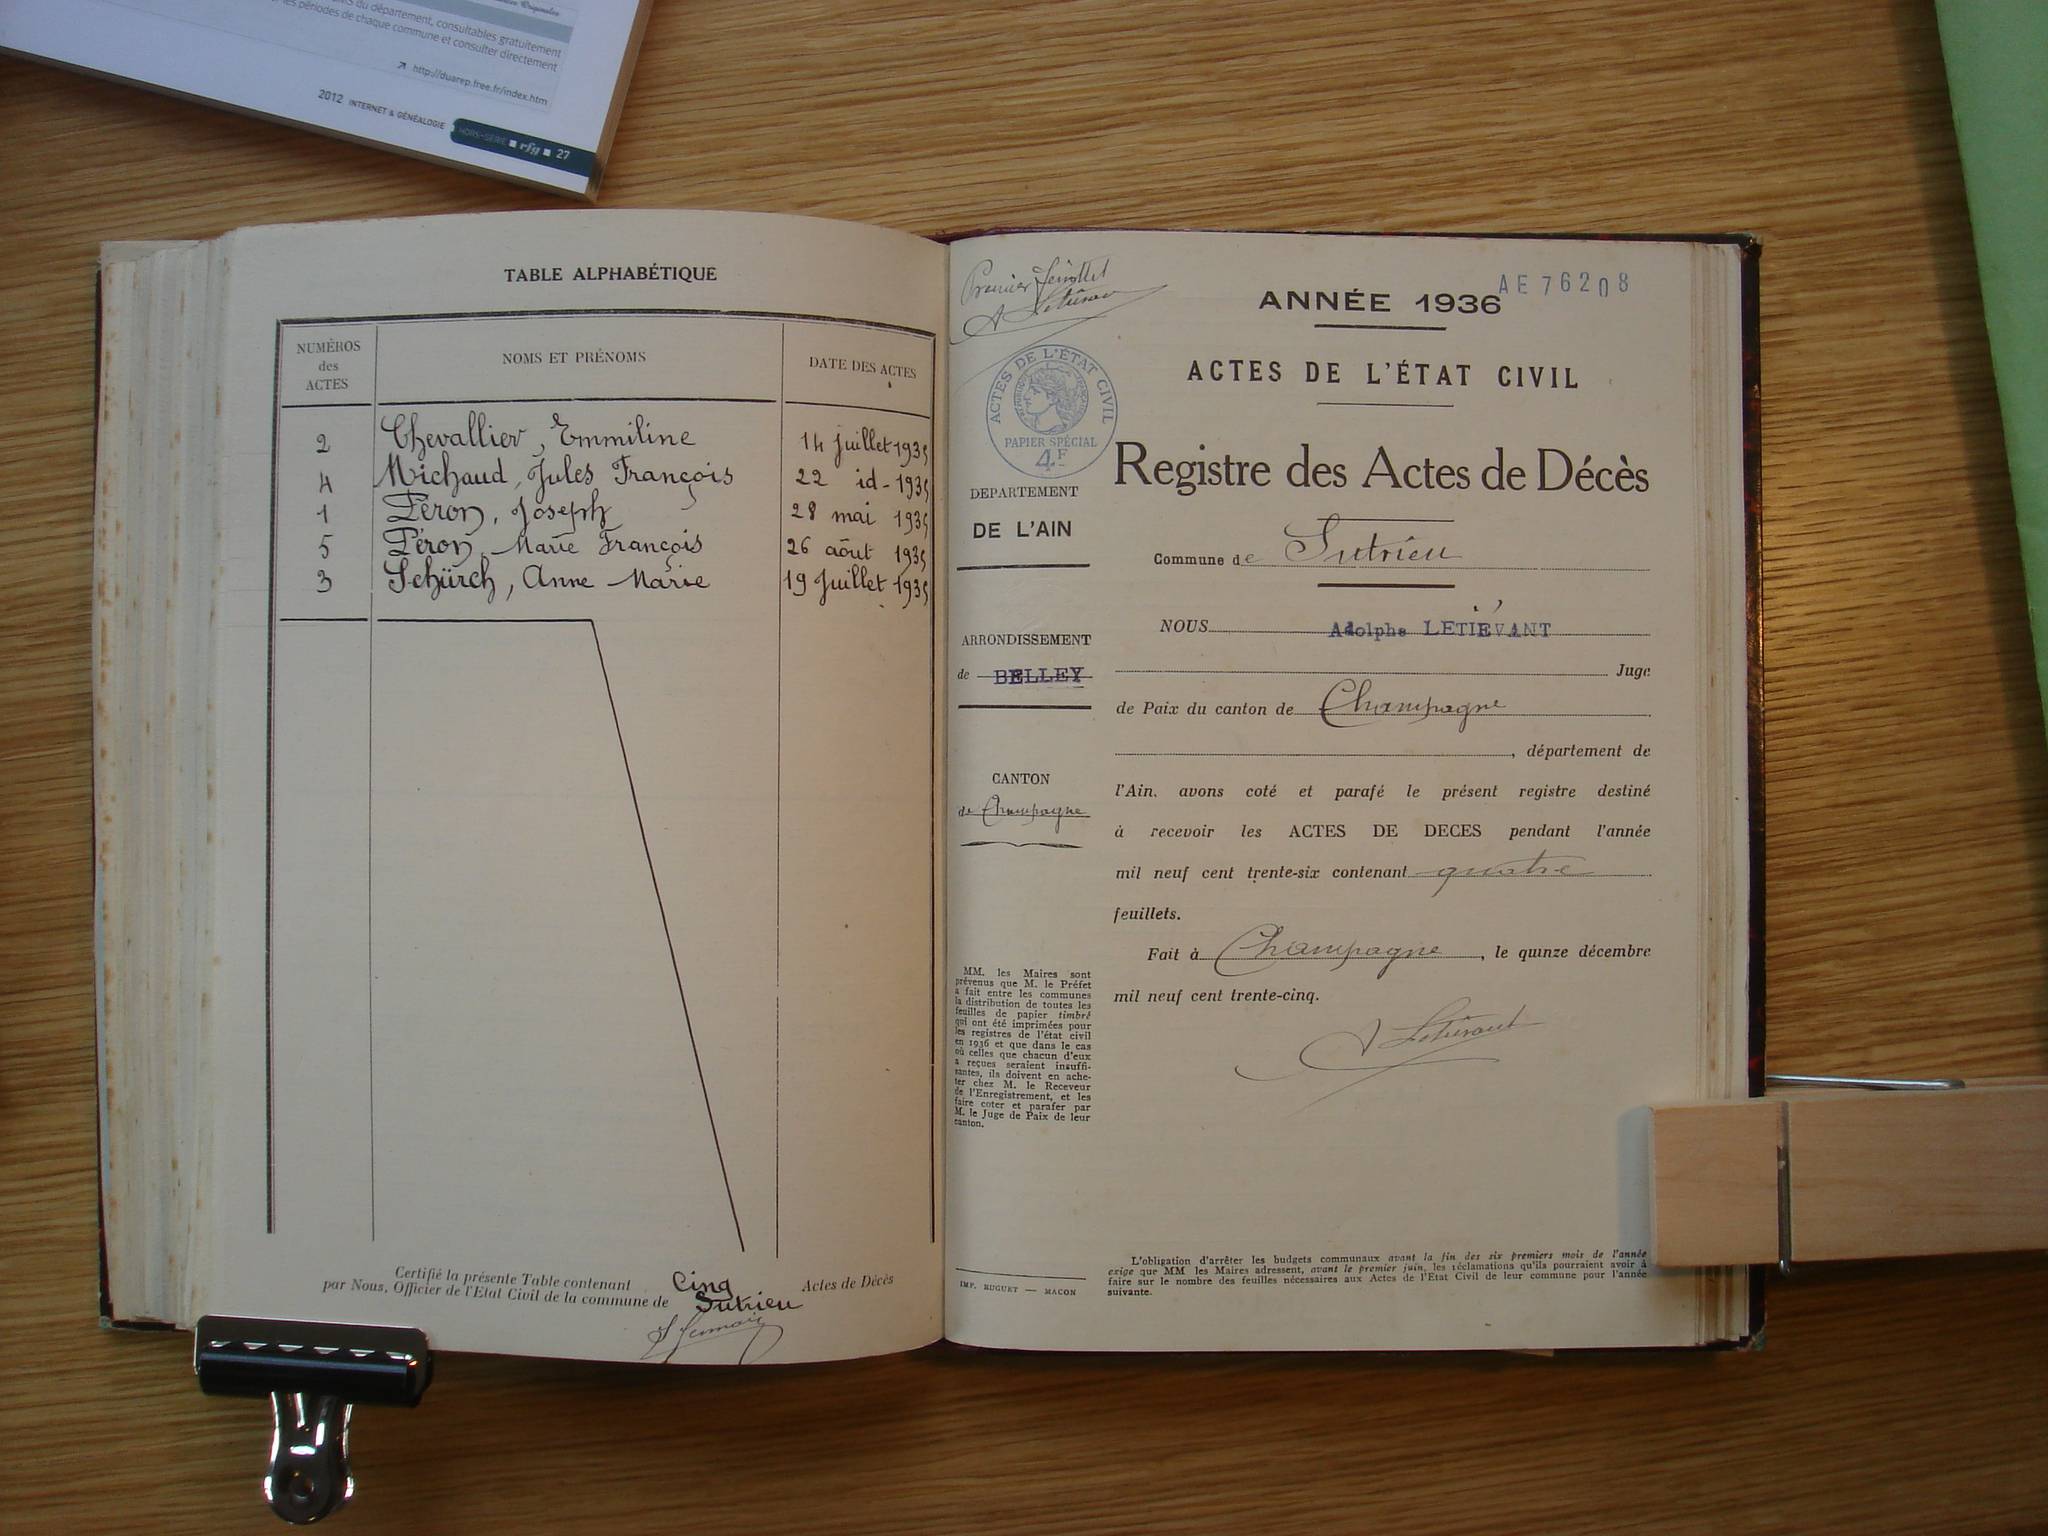 du département, consultables gratuitement
les périodes de chaque commune et consulter directement
http://duarep.free.fr/index.htm
2012 INTERNET & GÉNÉALOGIE HORS-SÉRIE rfg 27
TABLE ALPHABÉTIQUE
NUMÉROS des ACTES NOMS ET PRÉNOMS DATE DES ACTES
2 Chevallier, Emmiline 14 juillet 1935
4 Michaud, Jules François 22 id - 1935
1 Péron, Joseph 28 mai 1935
5 Péron, Marie François 26 août 1935
3 Schürch, Anne Marie 19 Juillet 1935
Certifié la présente Table contenant Cinq Actes de Décès
par Nous, Officier de l'Etat Civil de la commune de Sutrieu
Premier feuillet
A Letiévant
AE 76208
ANNÉE 1936
ACTES DE L'ÉTAT CIVIL
ACTES DE L'ÉTAT CIVIL
RÉPUBLIQUE FRANÇAISE
PAPIER SPÉCIAL
4F
Registre des Actes de Décès
DEPARTEMENT
DE L'AIN
Commune de Sutrieu
ARRONDISSEMENT
de BELLEY
CANTON
de Champagne
NOUS Adolphe LETIÉVANT
Juge
de Paix du canton de Champagne
, département de
l'Ain. avons coté et parafé le présent registre destiné
à recevoir les ACTES DE DECES pendant l'année
mil neuf cent trente-six contenant quatre
feuillets.
Fait à Champagne, le quinze décembre
mil neuf cent trente-cinq.
A Letiévant
MM. les Maires sont
prévenus que M. le Préfet
a fait entre les communes
la distribution de toutes les
feuilles de papier timbré
qui ont été imprimées pour
les registres de l'état civil
en 1936 et que dans le cas
où celles que chacun d'eux
a reçues seraient insuffi-
santes, ils doivent en ache-
ter chez M. le Receveur
de l'Enregistrement, et les
faire coter et parafer par
M. le Juge de Paix de leur
canton.
IMP. BUGUET — MACON
L'obligation d'arrêter les budgets communaux avant la fin des six premiers mois de l'année
exige que MM les Maires adressent, avant le premier juin, les réclamations qu'ils pourraient avoir à
faire sur le nombre des feuilles nécessaires aux Actes de l'Etat Civil de leur commune pour l'année
suivante.